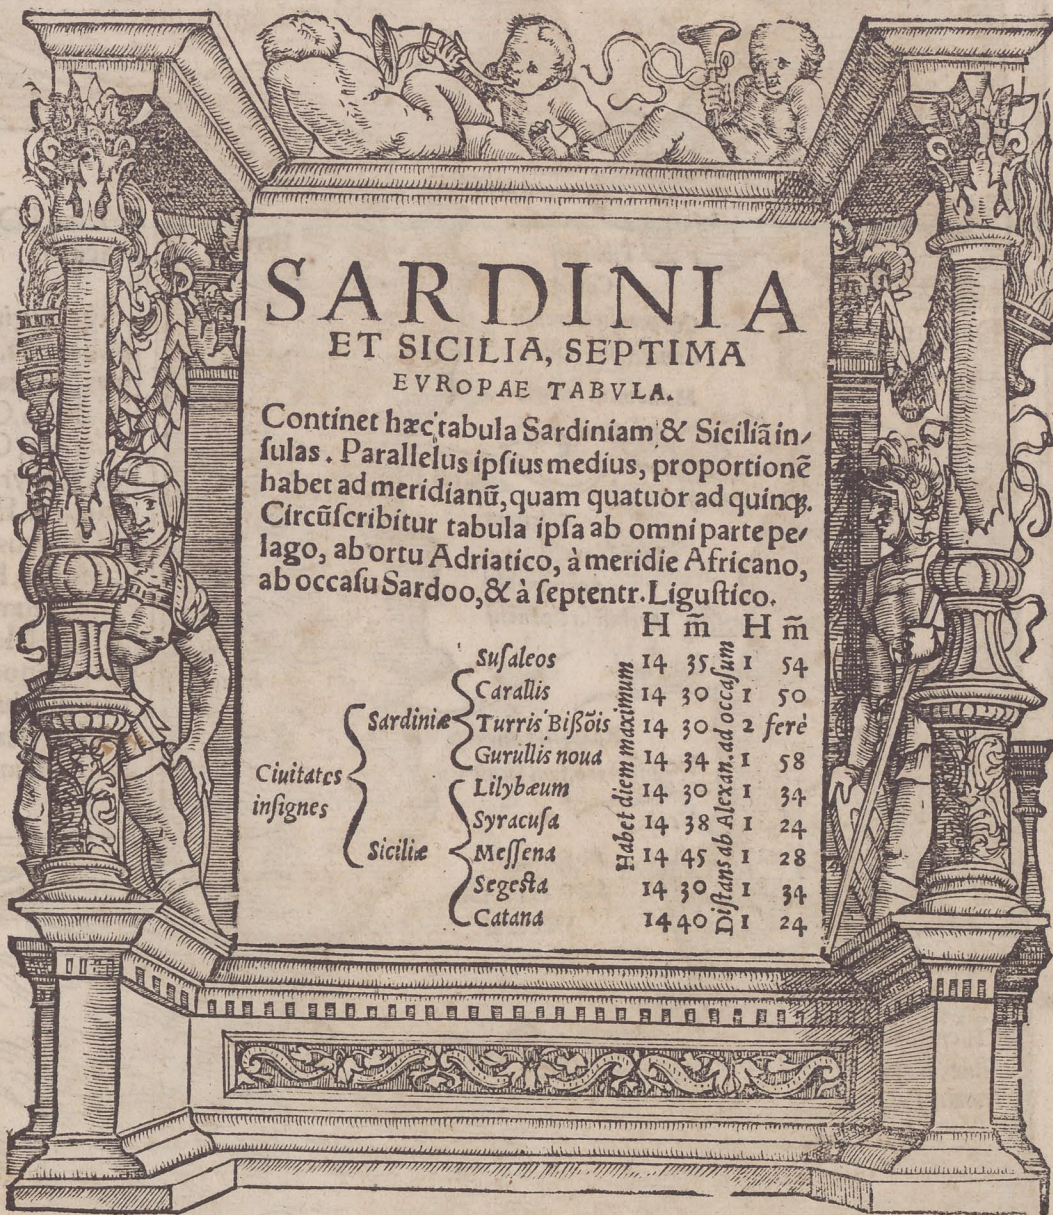 SARDINIA
ET SICILIA, SEPTIMA
EVROPAE TABVLA.
Continet hæc tabula Sardiniam & Siciliã in/
ſulas. Parallelus ipſius medius, proportionẽ
habet ad meridianũ, quam quatuor ad quinqꝫ.
Circũſcribitur tabula ipſa ab omni parte pe/
lago, ab ortu Adriatico, à meridie Africano,
ab occaſu Sardoo, & à ſeptentr. Liguſtico.
H m̃ H m̃
Ciuitates
inſignes
Sardiniæ
Siciliæ
Habet diem maximum
Diſtans ab Alexan. ad occaſum
Suſaleos 14 35 1 54
Carallis 14 30 1 50
Turris Bißõis 14 30 2 ferè
Gurullis noua 14 34 1 58
Lilybæum 14 30 1 34
Syracuſa 14 38 1 24
Meſſena 14 45 1 28
Segeſta 14 30 1 34
Catana 14 40 1 24